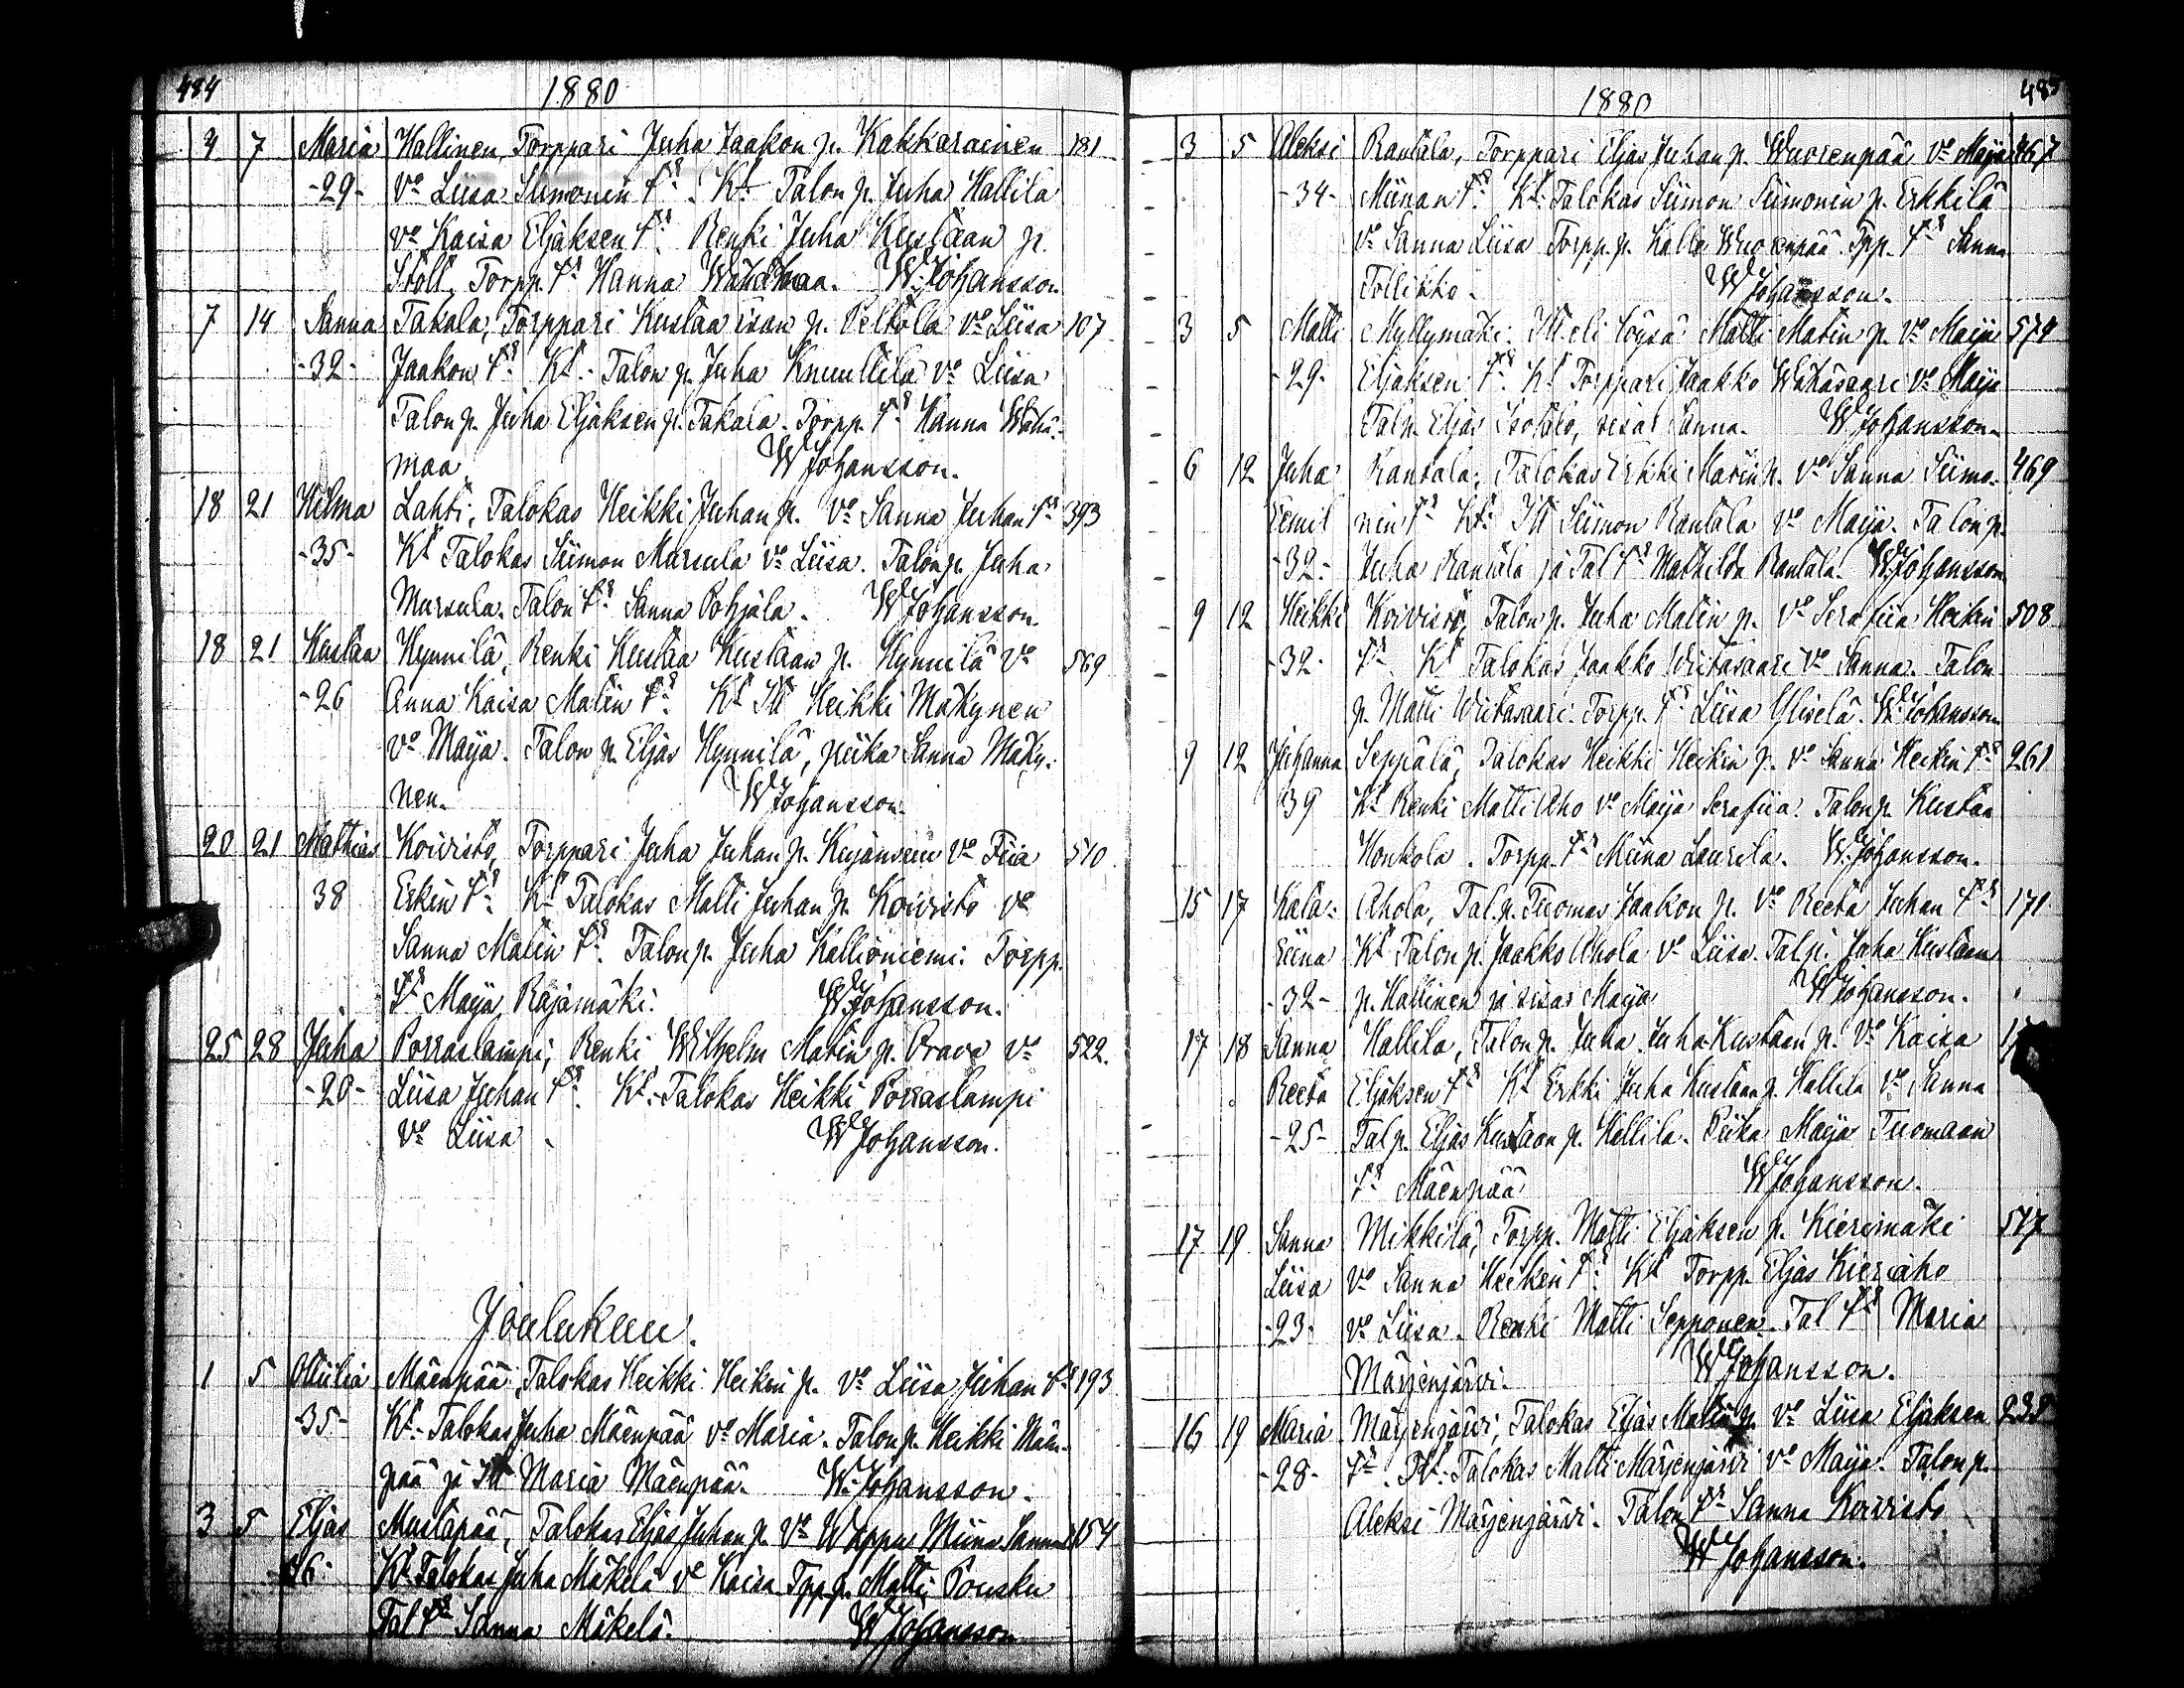 484
1880
4 7 Maria Hallinen, Torppari Juha Jaakon p. Kakkarainen 181
-29- Vo Liisa Siimonin tr. Kt. Talon p. Juha Hallila
vo Kaisa Eljaksen tr. Renki Juha Kustaan p.
Stoll, Torpp. tr Hanna Wähämaa. W. Johansson.
7 14 Sanna Takala, Torppari Kustaa Iisan p. Peltola vo Liisa 107
-32- Jaakon tr. Kt. Talon p. Juha Knuuttila vo Liisa
Talon p. Juha Eljaksen p. Takala. Torpp. tr Hanna Wähä-
maa. W Johansson.
18 21 Hilma Lahti, Talokas Heikki Juhan p. Vo Sanna Juhan tr 393
-35- Kt Talokas Siimon Marsula vo Liisa. Talon p. Juha
Mursula. Talon tr. Sanna Pohjala. W Johansson.
18 21 Kustaa Hynnilä, Renki Kustaa Kustaan p. Hynnilä vo 569
-26 Anna Kaisa Matin tr. Kt Itt Heikki Mäkynen
vo Maija. Talon p. Eljas Hynnilä, piika Sanna Mäky-
nen. W Johansson.
20 21 Mathias Koivisto, Torppari Juha Juhan p. Kujansuu vo Fiia 510
38 Erkin tr. Kt Talokas Matti Juhan p. Koivisto vo
Sanna Matin tr. Talon p. Juha Kallioniemi. Torpp.
tr Maija Rajamäki. W Johansson.
25 28 Juha Porraslampi, Renki Wilhelm Matin p. Orava vo 522.
-20- Liisa Juhan tr. Kt. Talokas Heikki Porraslampi
vo Liisa. W Johansson.
Joulukuu.
1 5 Ottilia Mäenpää, Talokas Heikki Heikin p. Vo Liisa Juhan tr 193
-35- Kt. Talokas Juha Mäenpää vo Maria. Talon p. Heikki Mäen-
pää ja Itt Maria Mäenpää. W. Johansson.
3 5 Eljas Mustapää, Talokas Eljas Juhan p. Vo Wappu Miina 154
Kt. Talokas Juha Mäkelä vo Kaisa Tpp p. Matti Pousku
Tal tr Sanna Mäkelä. W Johansson
485
1880
3 5 Aleksi Rantala, Torppari Eljas Juhan p. Wuorenpää vo Maija 467
-34- Miinan tr. Kt. Talokas Siimon Siimonin p. Erkkilä
vo Sanna Liisa Torpp. p. Kalle Wuorenpää. Tpp. tr Sanna
Tollikko. W Johansson.
3 5 Matti Myllymäki, Itt. eli löysä Matti Matin p. vo Maija 574
-29- Eljaksen tr. Kt Torppari Jaakko Wähäsaari vo Maija
Tal p. Eljas Isotalo, sisar Sanna. W Johansson.
6 12 Juha Rantala, Talokas Erkki Matin p. vo Sanna Siimo- 469
Eemil nin tr Kt. Itt Siimon Rantala vo Maija. Talon p.
-32- Juha Rantala ja Tal tr Mathilda Rantala. W. Johansson
9 12 Heikki Koivisto, Talon p. Juha Matin p. vo Serafiia Heikin 508
-32- tr Kt Talokas Jaakko Wiitasaari vo Sanna. Talon
p. Matti Wiitasaari. Torpp. tr Liisa Ylivelä. W. Johansson
9 12 Johanna Seppälä, Talokas Heikki Heikin p. vo Sanna Heikin tr 261
39 Kt Renki Matti Aho vo Maija Serafiia. Talon p. Kustaa
Honkola. Torpp. tr Miina Laurila. W. Johansson.
15 17 Kata- Ahola, Tal. p. Tuomas Jaakon p. vo Reeta Juhan tr 171
riina Kt Talon p. Jaakko Ahola vo Liisa. Tal p. Juha Kustaan
-32- p. Hallinen ja sisar Maija W Johansson.
17 18 Sanna Hallila, Talon p. Juha Juha Kustaan p. vo Kaisa
Reeta Eljaksen tr Kt Erkki Juha Kustaan p. Hallila vo Sanna
-25- Tal p. Eljas Kustaan p. Hallila. Piika Maija Tuomaan
tr Mäenpää W Johansson.
17 19 Sanna Mikkilä, Torpp. Matti Eljaksen p. Kierimäki 517
Liisa vo Sanna Heikin tr. Kt Torpp. Eljas Kieriaho
-23- vo Liisa. Renki Matti Sepponen. Tal tr Maria
Märjenjärvi. W Johansson.
16 19 Maria Märjenjärvi, Talokas Eljas Matin p. vo Liisa Eljaksen 238
-28- tr. Kt. Talokas Matti Märjenjärvi vo Maija. Talon p.
Aleksi Märjenjärvi. Talon tr Sanna Koivisto
W Johansson.